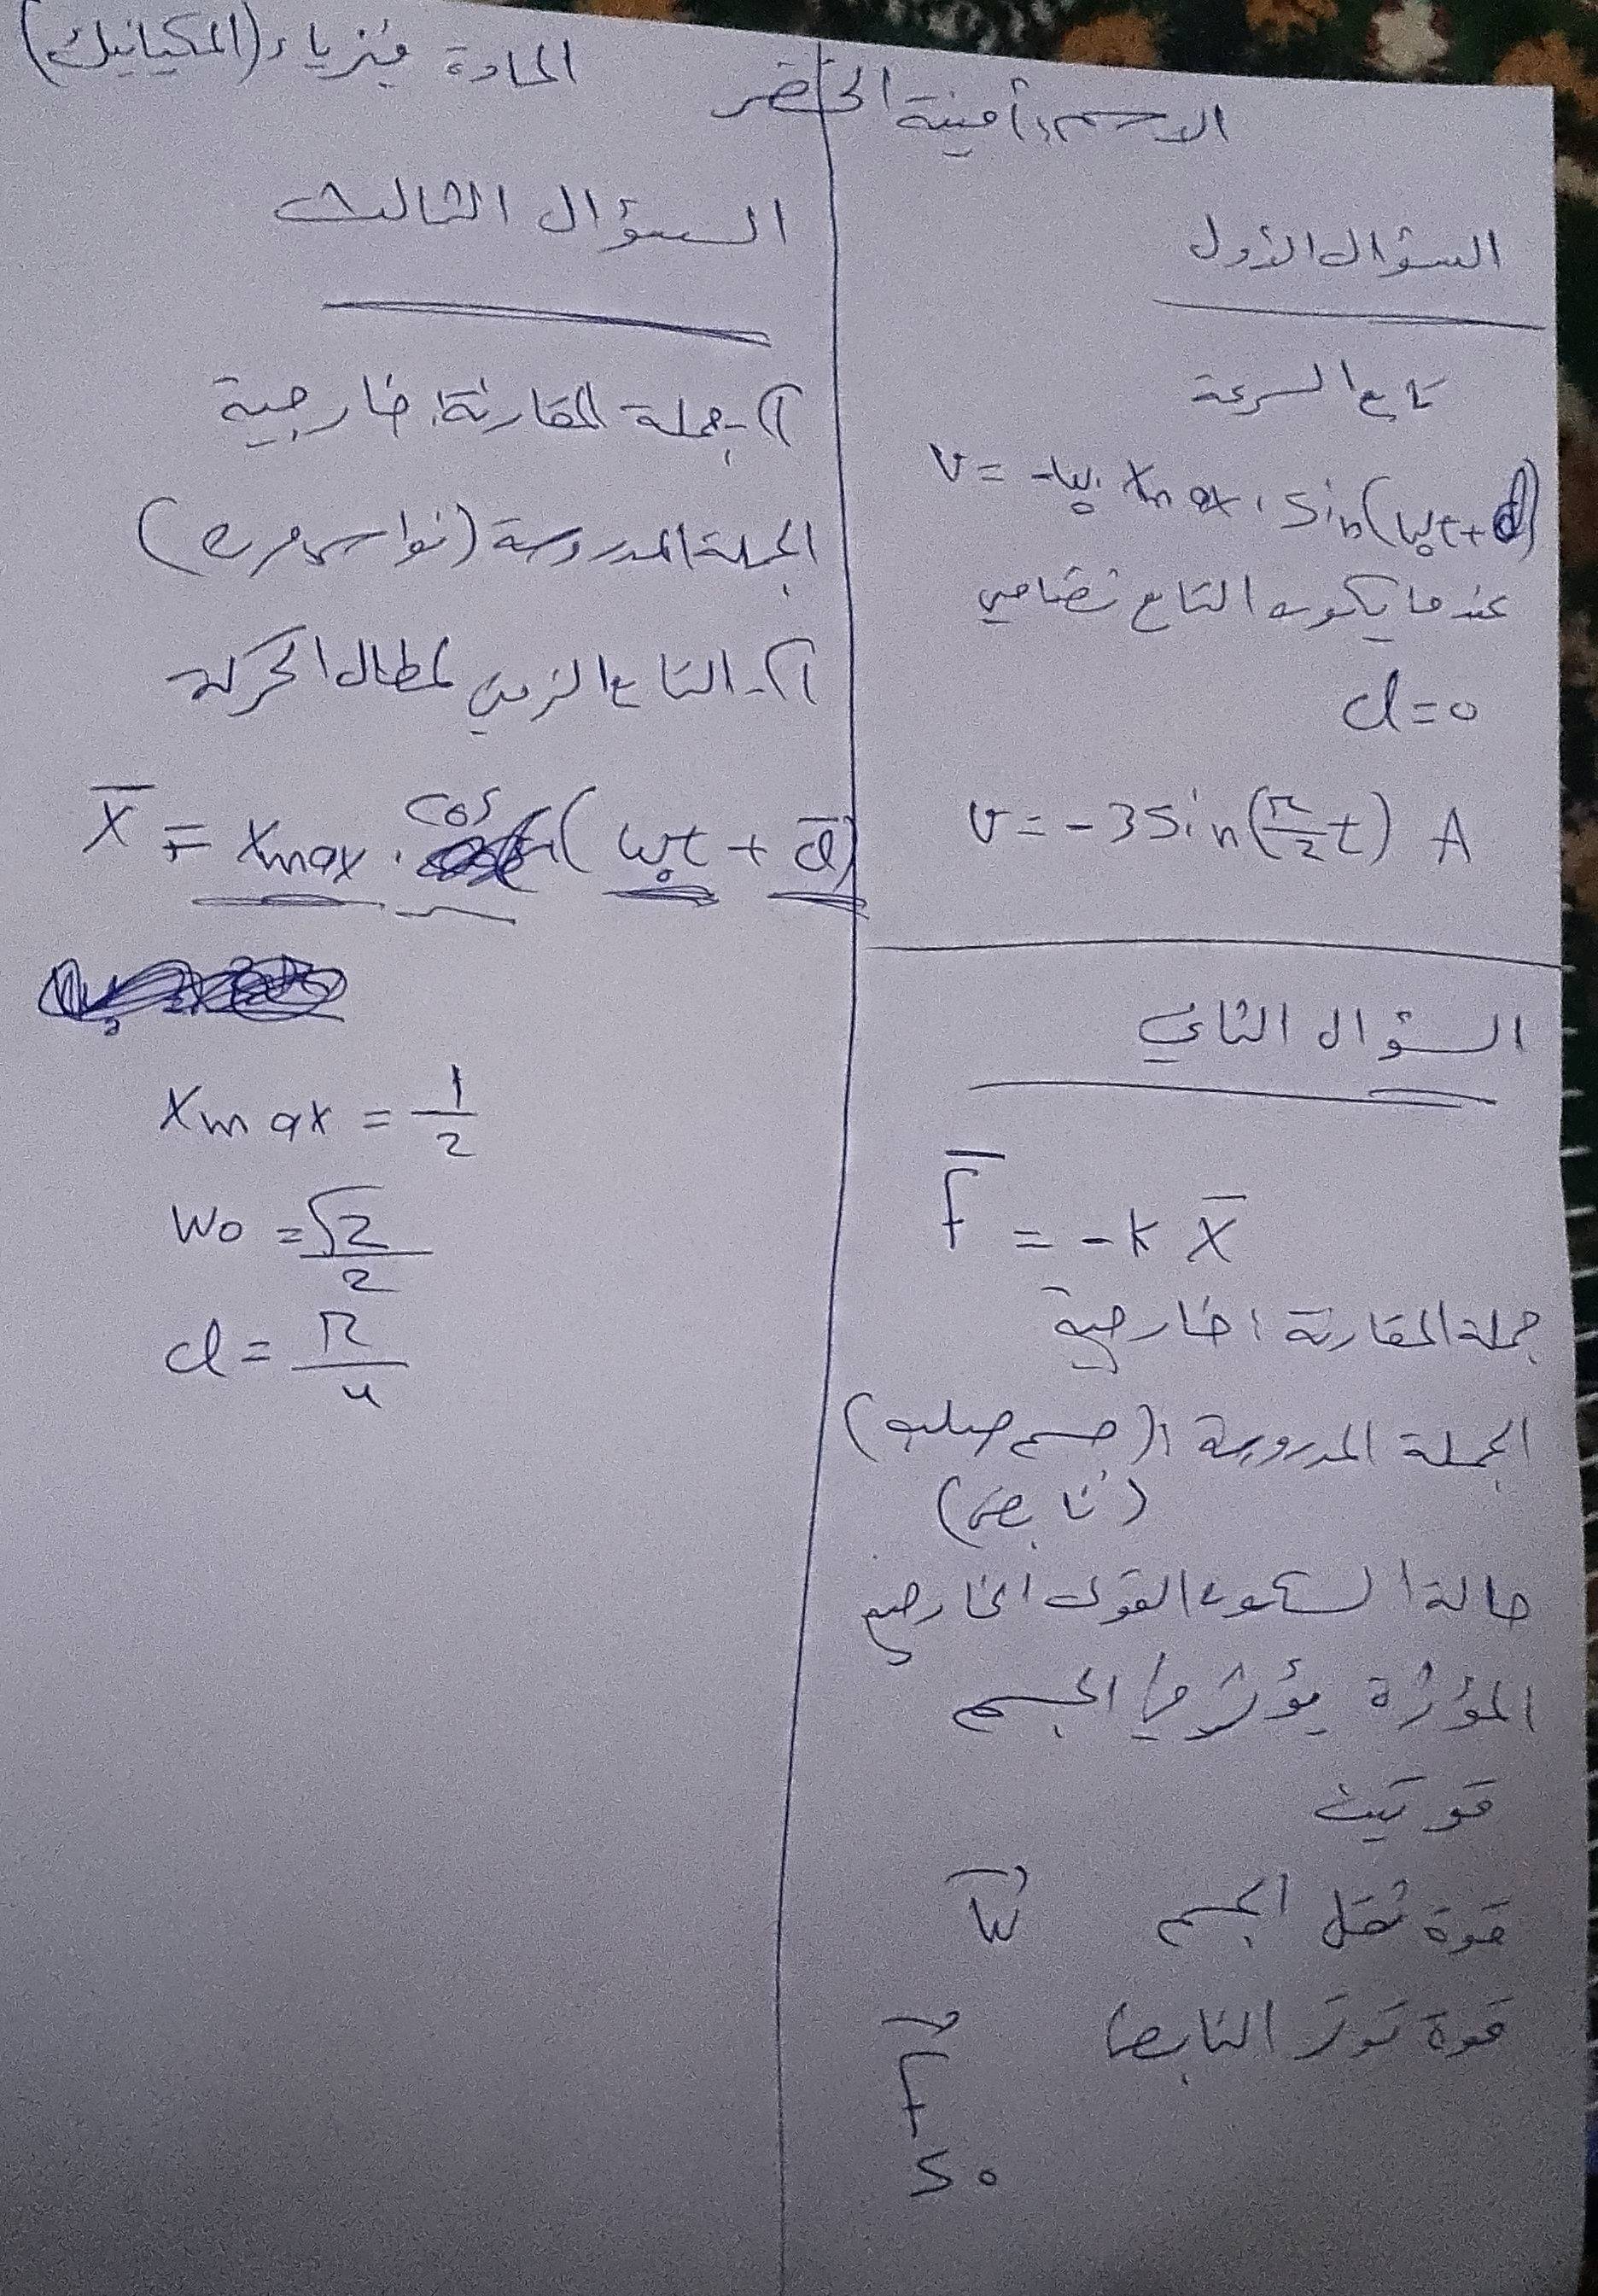 الاسم: أمينة الخضر
المادة فيزياء (الميكانيك)
السؤال الأول
تابع السرعة
v = -ω₀ xmax . sin(ω₀t + φ)
عندما يكون التابع
φ = 0
v = -3 sin(π/2 t) A
السؤال الثاني
F̄ = -k x̄
جملة المقارنة: خارجية
الجملة المدروسة: (جسم صلب)
(نابض)
حالة السكون القوى الخارجية
المؤثرة يؤثر في الجسم
قوتين
قوة ثقل الجسم W⃗
قوة توتر النابض F⃗
S₀
السؤال الثالث
1- جملة المقارنة: خارجية
الجملة المدروسة (نواس مرن)
2- التابع الزمني لمطال الحركة
x̄ = xmax . cos (ω₀t + φ̄)
xmax = 1/2
ω₀ = √2/2
φ = π/4